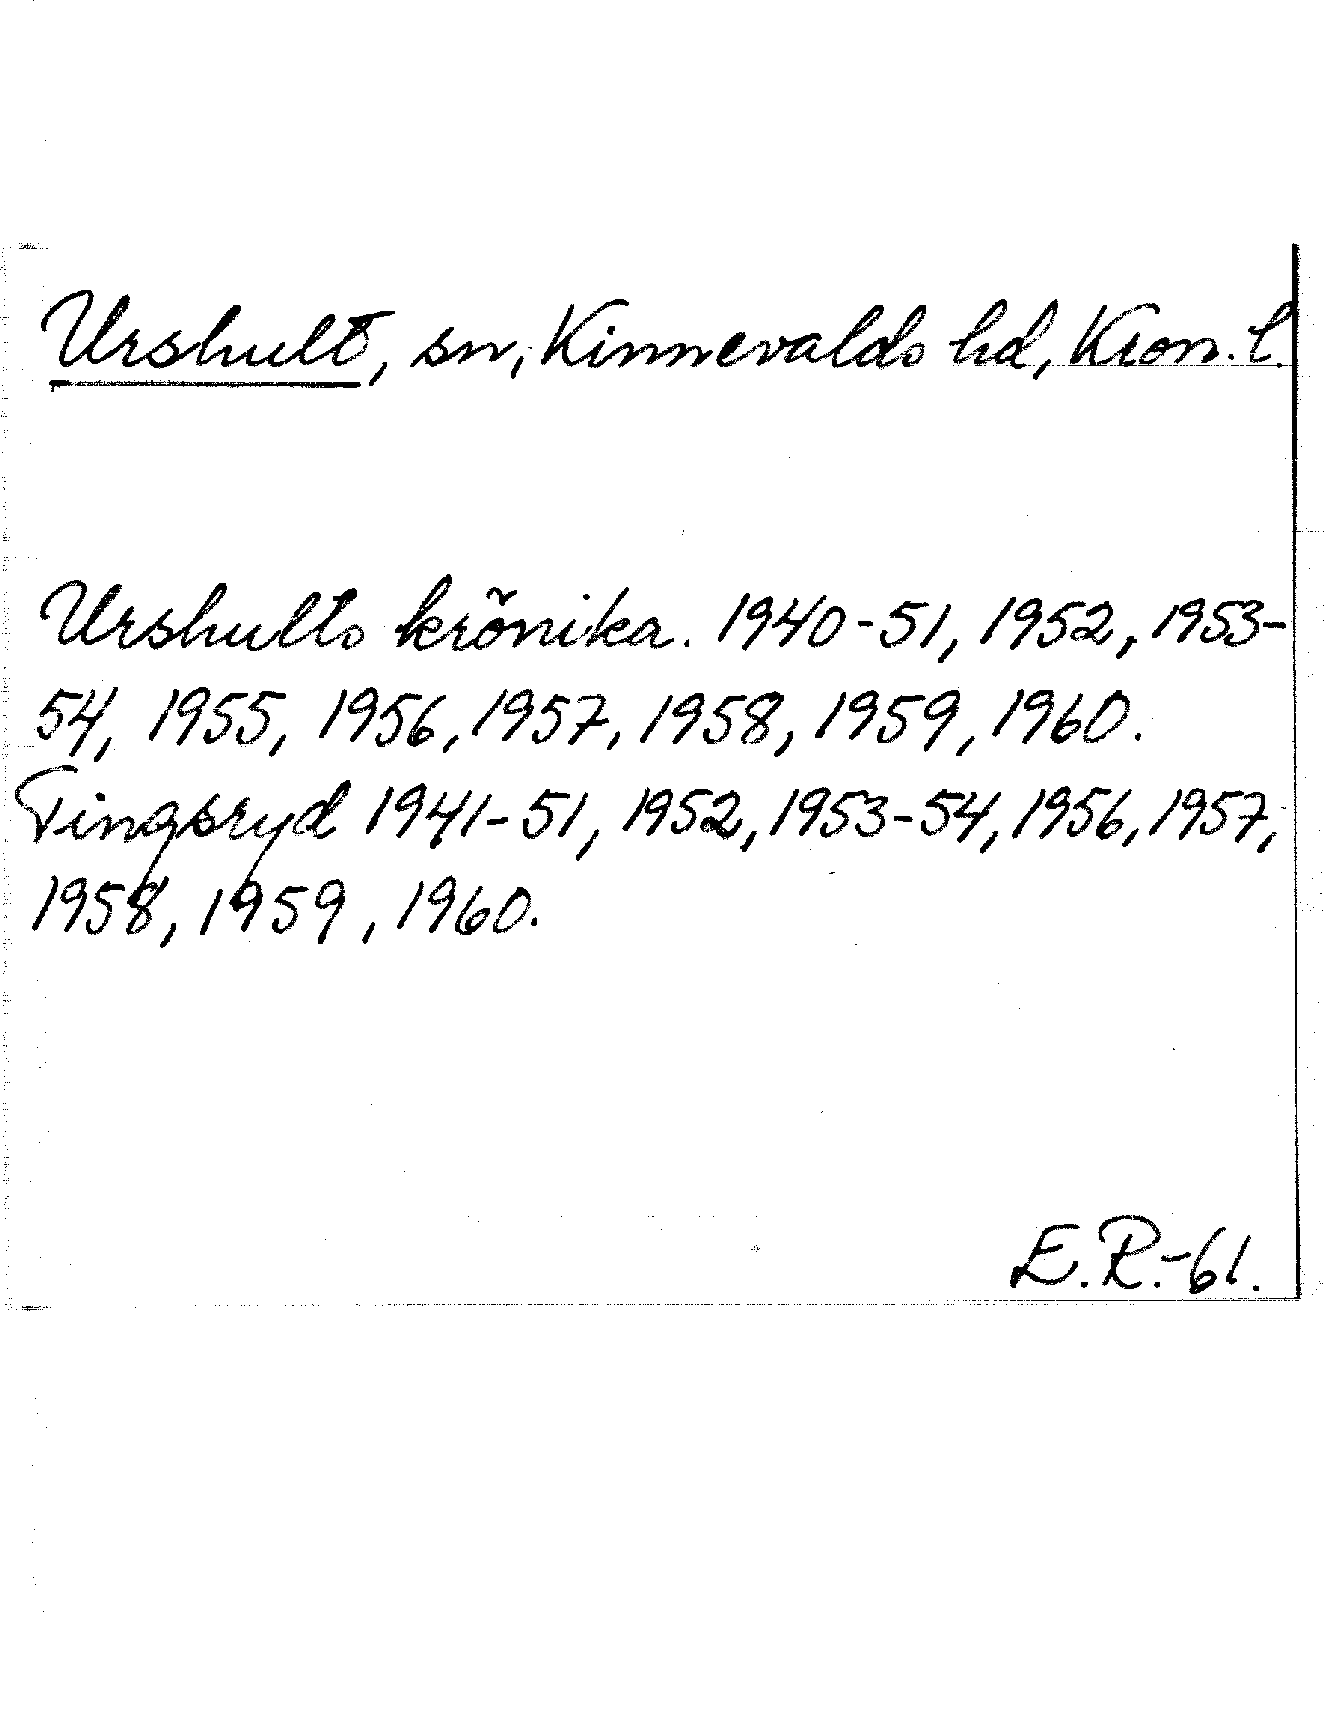 Urshult, sn, Kinnevalds hd, Kron. l.
Urshults krönika. 1940-51, 1952, 1953-
54, 1955, 1956, 1957, 1958, 1959, 1960.
Tingsryd 1941-51, 1952, 1953-54, 1956, 1957,
1958, 1959, 1960.
E.R.-61.